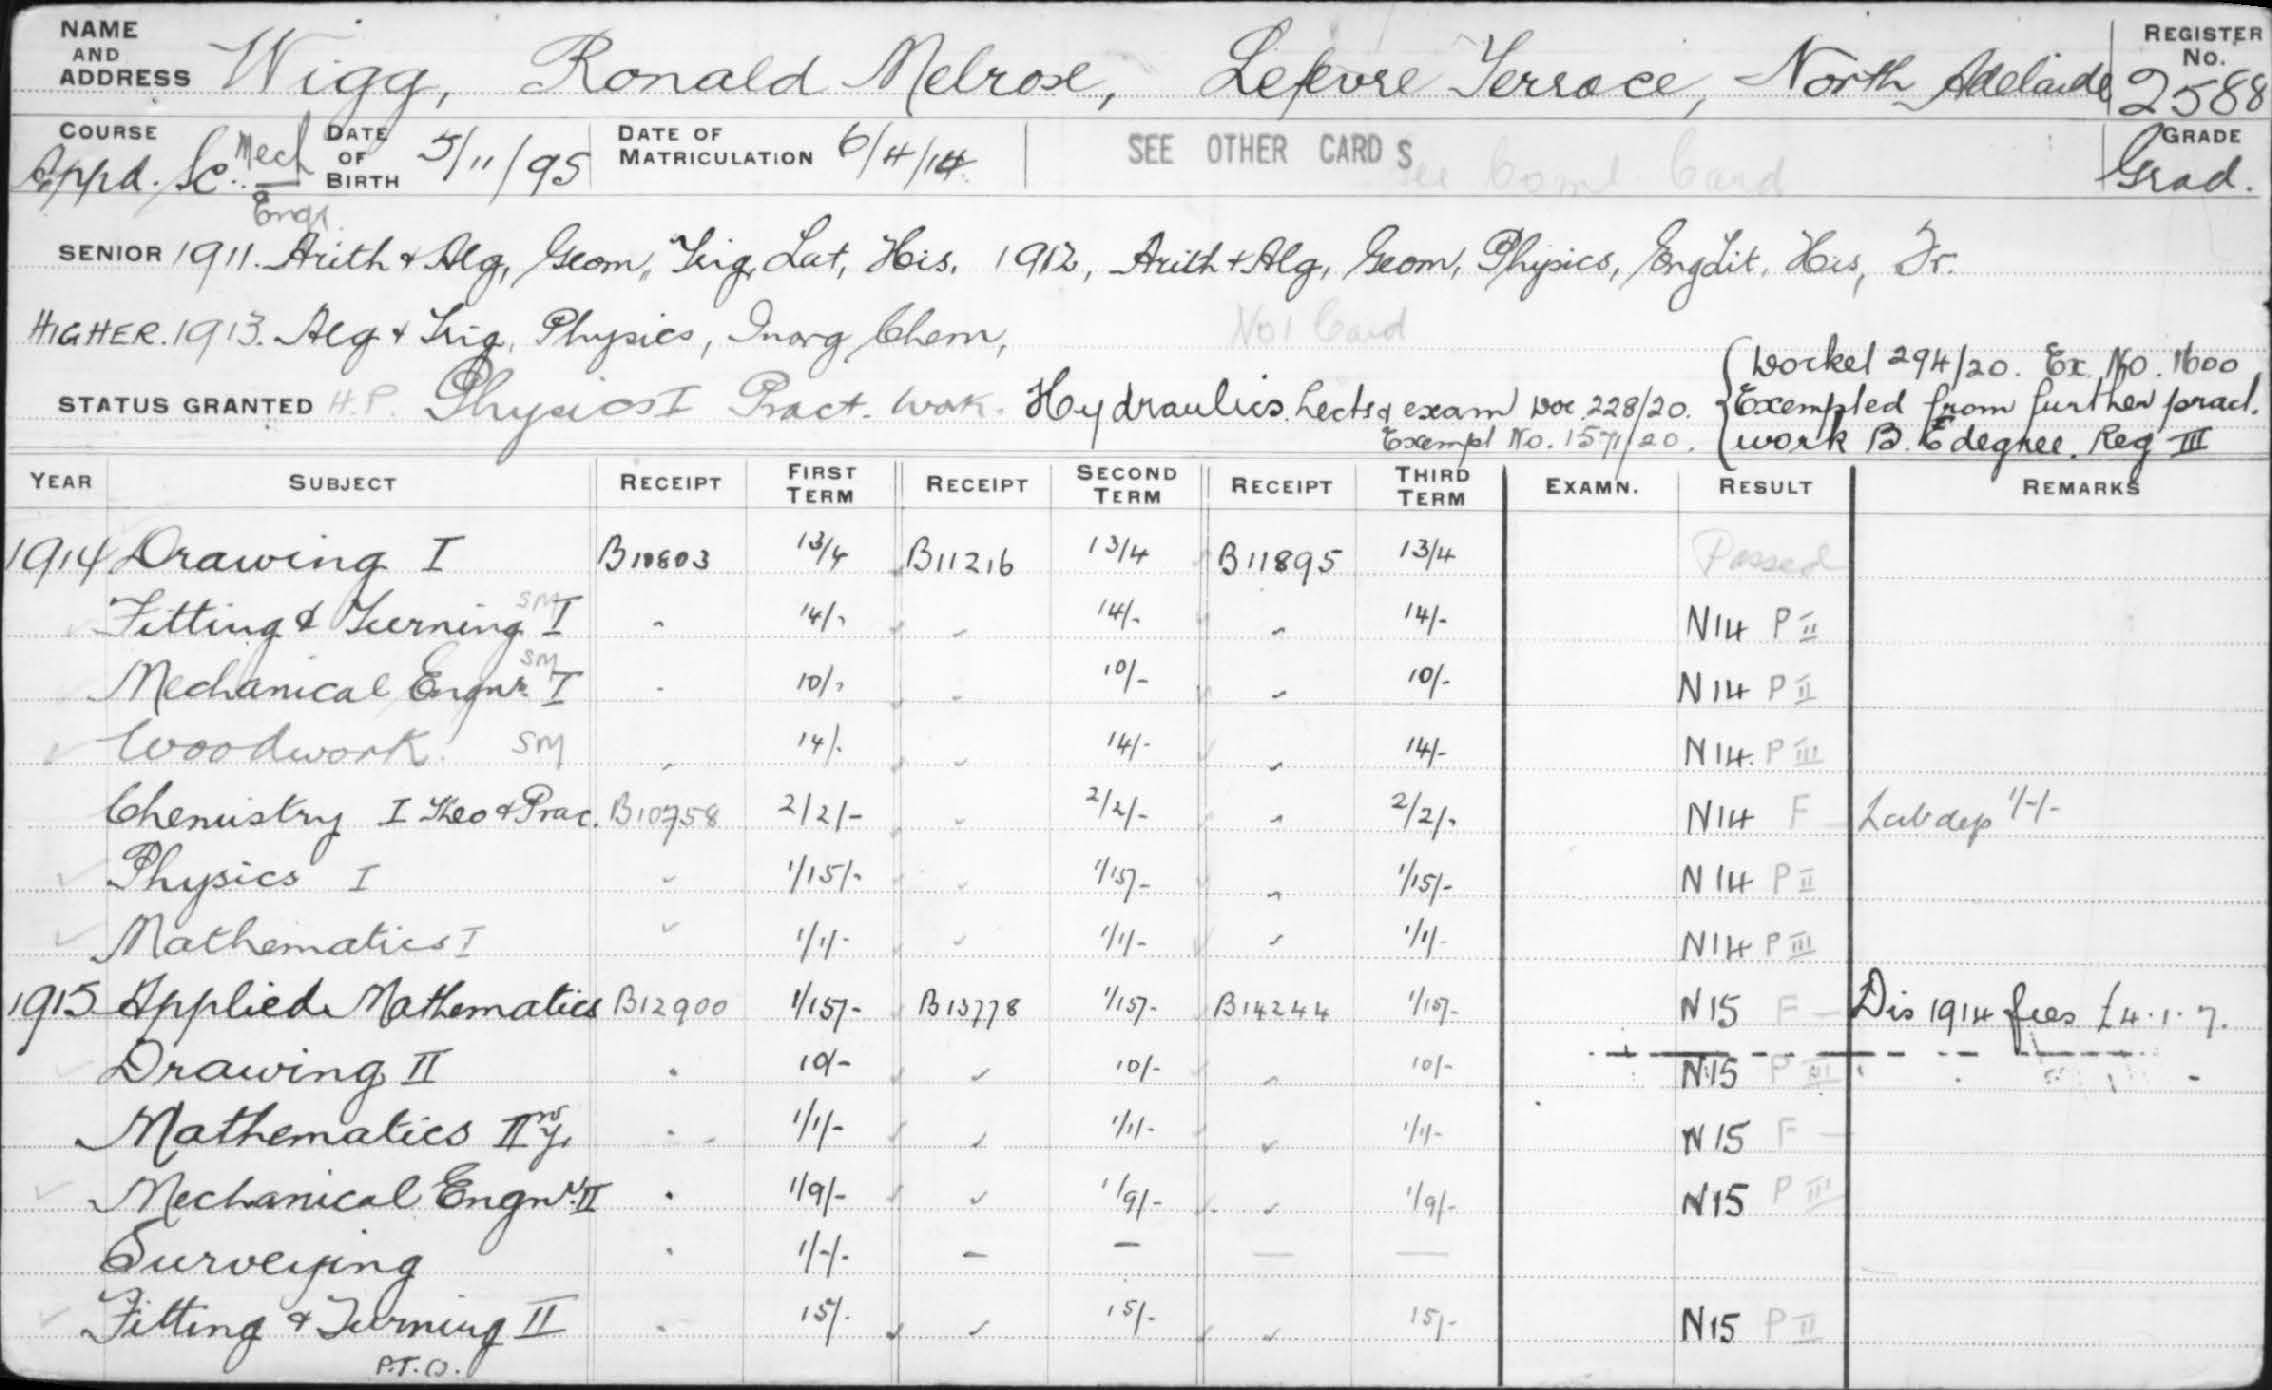 NAME AND ADDRESS Wigg, Ronald Melrose, Lefevre Terrace, North Adelaide REGISTER No. 2588
COURSE Appd. Sc. Mech Engr. DATE OF BIRTH 5/11/95 DATE OF MATRICULATION 6/4/14 SEE OTHER CARDS See Coml. Card GRADE Grad.
SENIOR 1911. Arith & Alg, Geom, Trig, Lat, His. 1912, Arith & Alg, Geom, Physics, Eng Lit, His, Fr.
HIGHER. 1913. Alg & Trig, Physics, Inorg Chem, No 1 Card
(Worked 294/20. Ex. No. 1600
STATUS GRANTED H.P. Physics I Pract. Work. Hydraulics. Lects & exam Doc 228/20. Exempted from further pract.
Exempt No. 1571/20. work B.E degree. Reg III
YEAR SUBJECT RECEIPT FIRST TERM RECEIPT SECOND TERM RECEIPT THIRD TERM EXAMN. RESULT REMARKS
1914 Drawing I B10803 13/4 B11216 13/4 B11895 13/4 Passed
Fitting & Turning SM I 14/- 14/- 14/- N14 P II
Mechanical Engnr. SM I 10/- 10/- 10/- N14 P II
Woodwork SM 14/- 14/- 14/- N14. P III
Chemistry I Theo & Prac. B10758 2/2/- 2/2/- 2/2/- N14 F Lab dep 1/-/-
Physics I 1/15/- 1/15/- 1/15/- N14 P II
Mathematics I 1/1/- 1/1/- 1/1/- N14 P III
1915 Applied Mathematics B12900 1/15/- B13778 1/15/- B14244 1/15/- N15 F — Dis 1914 fees £4.1.7.
Drawing II 10/- 10/- 10/- N15 P III
Mathematics II 1/1/- 1/1/- 1/1/- N15 F —
Mechanical Engnr. II 1/9/- 1/9/- 1/9/- N15 P III
Surveying 1/-/- — — — —
Fitting & Turning II 15/- 15/- 15/- N15 P II
P.T.O.